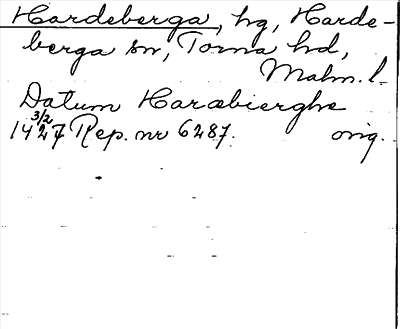 Hardeberga, hg, Harde-
berga sn, Torna hd,
Malm. l.
Datum Haræbierghe
3/2
1427 Rep. nr 6287. orig.